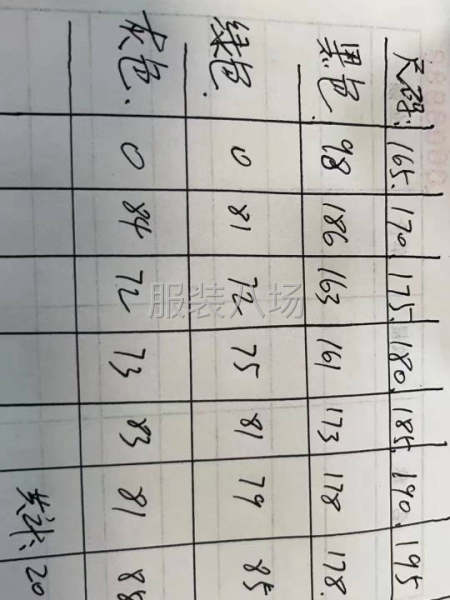 尺码. 165. 170. 175. 180. 185. 190. 195
黑色. 98 186 163 161 173 178 178.
绿色. 0 81 72 75 81 79 85
灰色. 0 84 72 73 83 81
共计: 20
服装八场